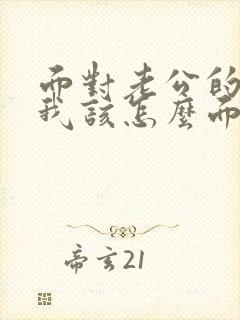 面對老公的
我該怎麼面
帝玄21